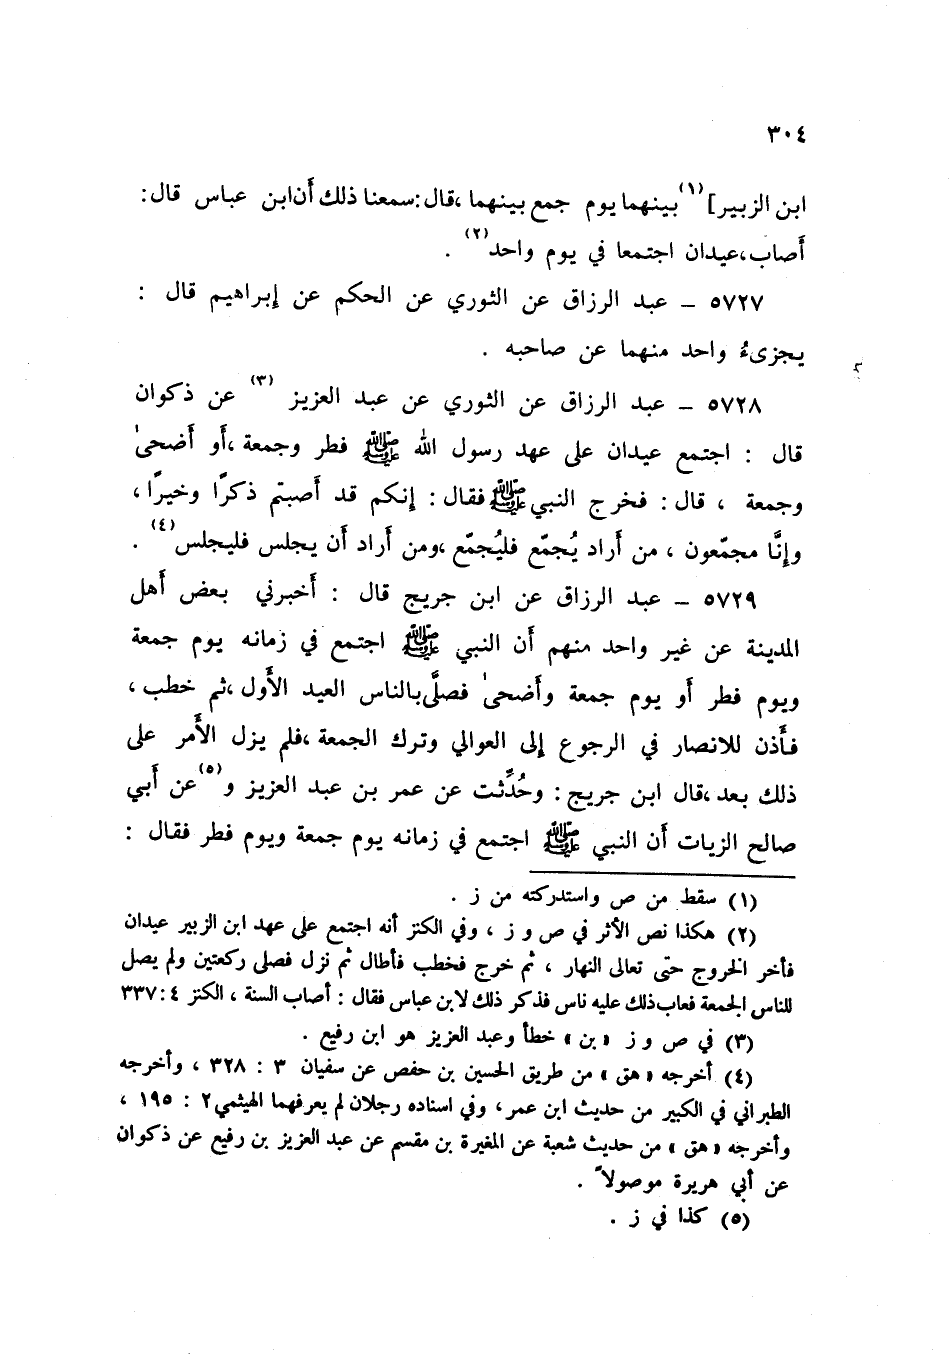 ٣٠٤
ابن الزبير](١) بينهما يوم جمع بينهما ،قال:سمعنا ذلك أَن ابن عباس قال:
أَصاب،عيدان اجتمعا في يوم واحد(٢) .
٥٧٢٧ – عبد الرزاق عن الثوري عن الحكم عن إبراهيم قال :
يجزىءُ واحد منهما عن صاحبه .
٥٧٢٨ – عبد الرزاق عن الثوري عن عبد العزيز (٣) عن ذكوان
قال : اجتمع عيدان على عهد رسول الله ﷺ فطر وجمعة ،أَو أَضحىٰ
وجمعة ، قال : فخرج النبي ﷺ فقال : إنكم قد أَصبتم ذكرًا وخيرًا ،
وإنَّا مجمّعون ، من أَراد يُجمّع فليُجمّع ،ومن أَراد أَن يجلس فليجلس(٤) .
٥٧٢٩ – عبد الرزاق عن ابن جريج قال : أَخبرني بعض أَهل
المدينة عن غير واحد منهم أَن النبي ﷺ اجتمع في زمانه يوم جمعة
ويوم فطر أَو يوم جمعة وأَضحىٰ فصلَّى بالناس العيد الأَول ،ثم خطب ،
فأَذن للانصار في الرجوع إلى العوالي وترك الجمعة ،فلم يزل الأَمر على
ذلك بعد ،قال ابن جريج : وحُدِّثت عن عمر بن عبد العزيز و(٥) عن أَبي
صالح الزيات أَن النبي ﷺ اجتمع في زمانه يوم جمعة ويوم فطر فقال :
(١) سقط من ص واستدركته من ز .
(٢) هكذا نص الأثر في ص و ز ، وفي الكنز أنه اجتمع على عهد ابن الزبير عيدان
فأخر الخروج حتى تعالى النهار ، ثم خرج فخطب فأطال ثم نزل فصلى ركعتين ولم يصل
للناس الجمعة فعاب ذلك عليه ناس فذكر ذلك لابن عباس فقال : أصاب السنة ، الكنز ٤ : ٣٣٧
(٣) في ص و ز « بن » خطأ وعبد العزيز هو ابن رفيع .
(٤) أخرجه « هق » من طريق الحسين بن حفص عن سفيان ٣ : ٣٢٨ ، وأخرجه
الطبراني في الكبير من حديث ابن عمر ، وفي اسناده رجلان لم يعرفهما الهيثمي ٢ : ١٩٥ ،
وأخرجه « هق » من حديث شعبة عن المغيرة بن مقسم عن عبد العزيز بن رفيع عن ذكوان
عن أبي هريرة موصولاً .
(٥) كذا في ز .